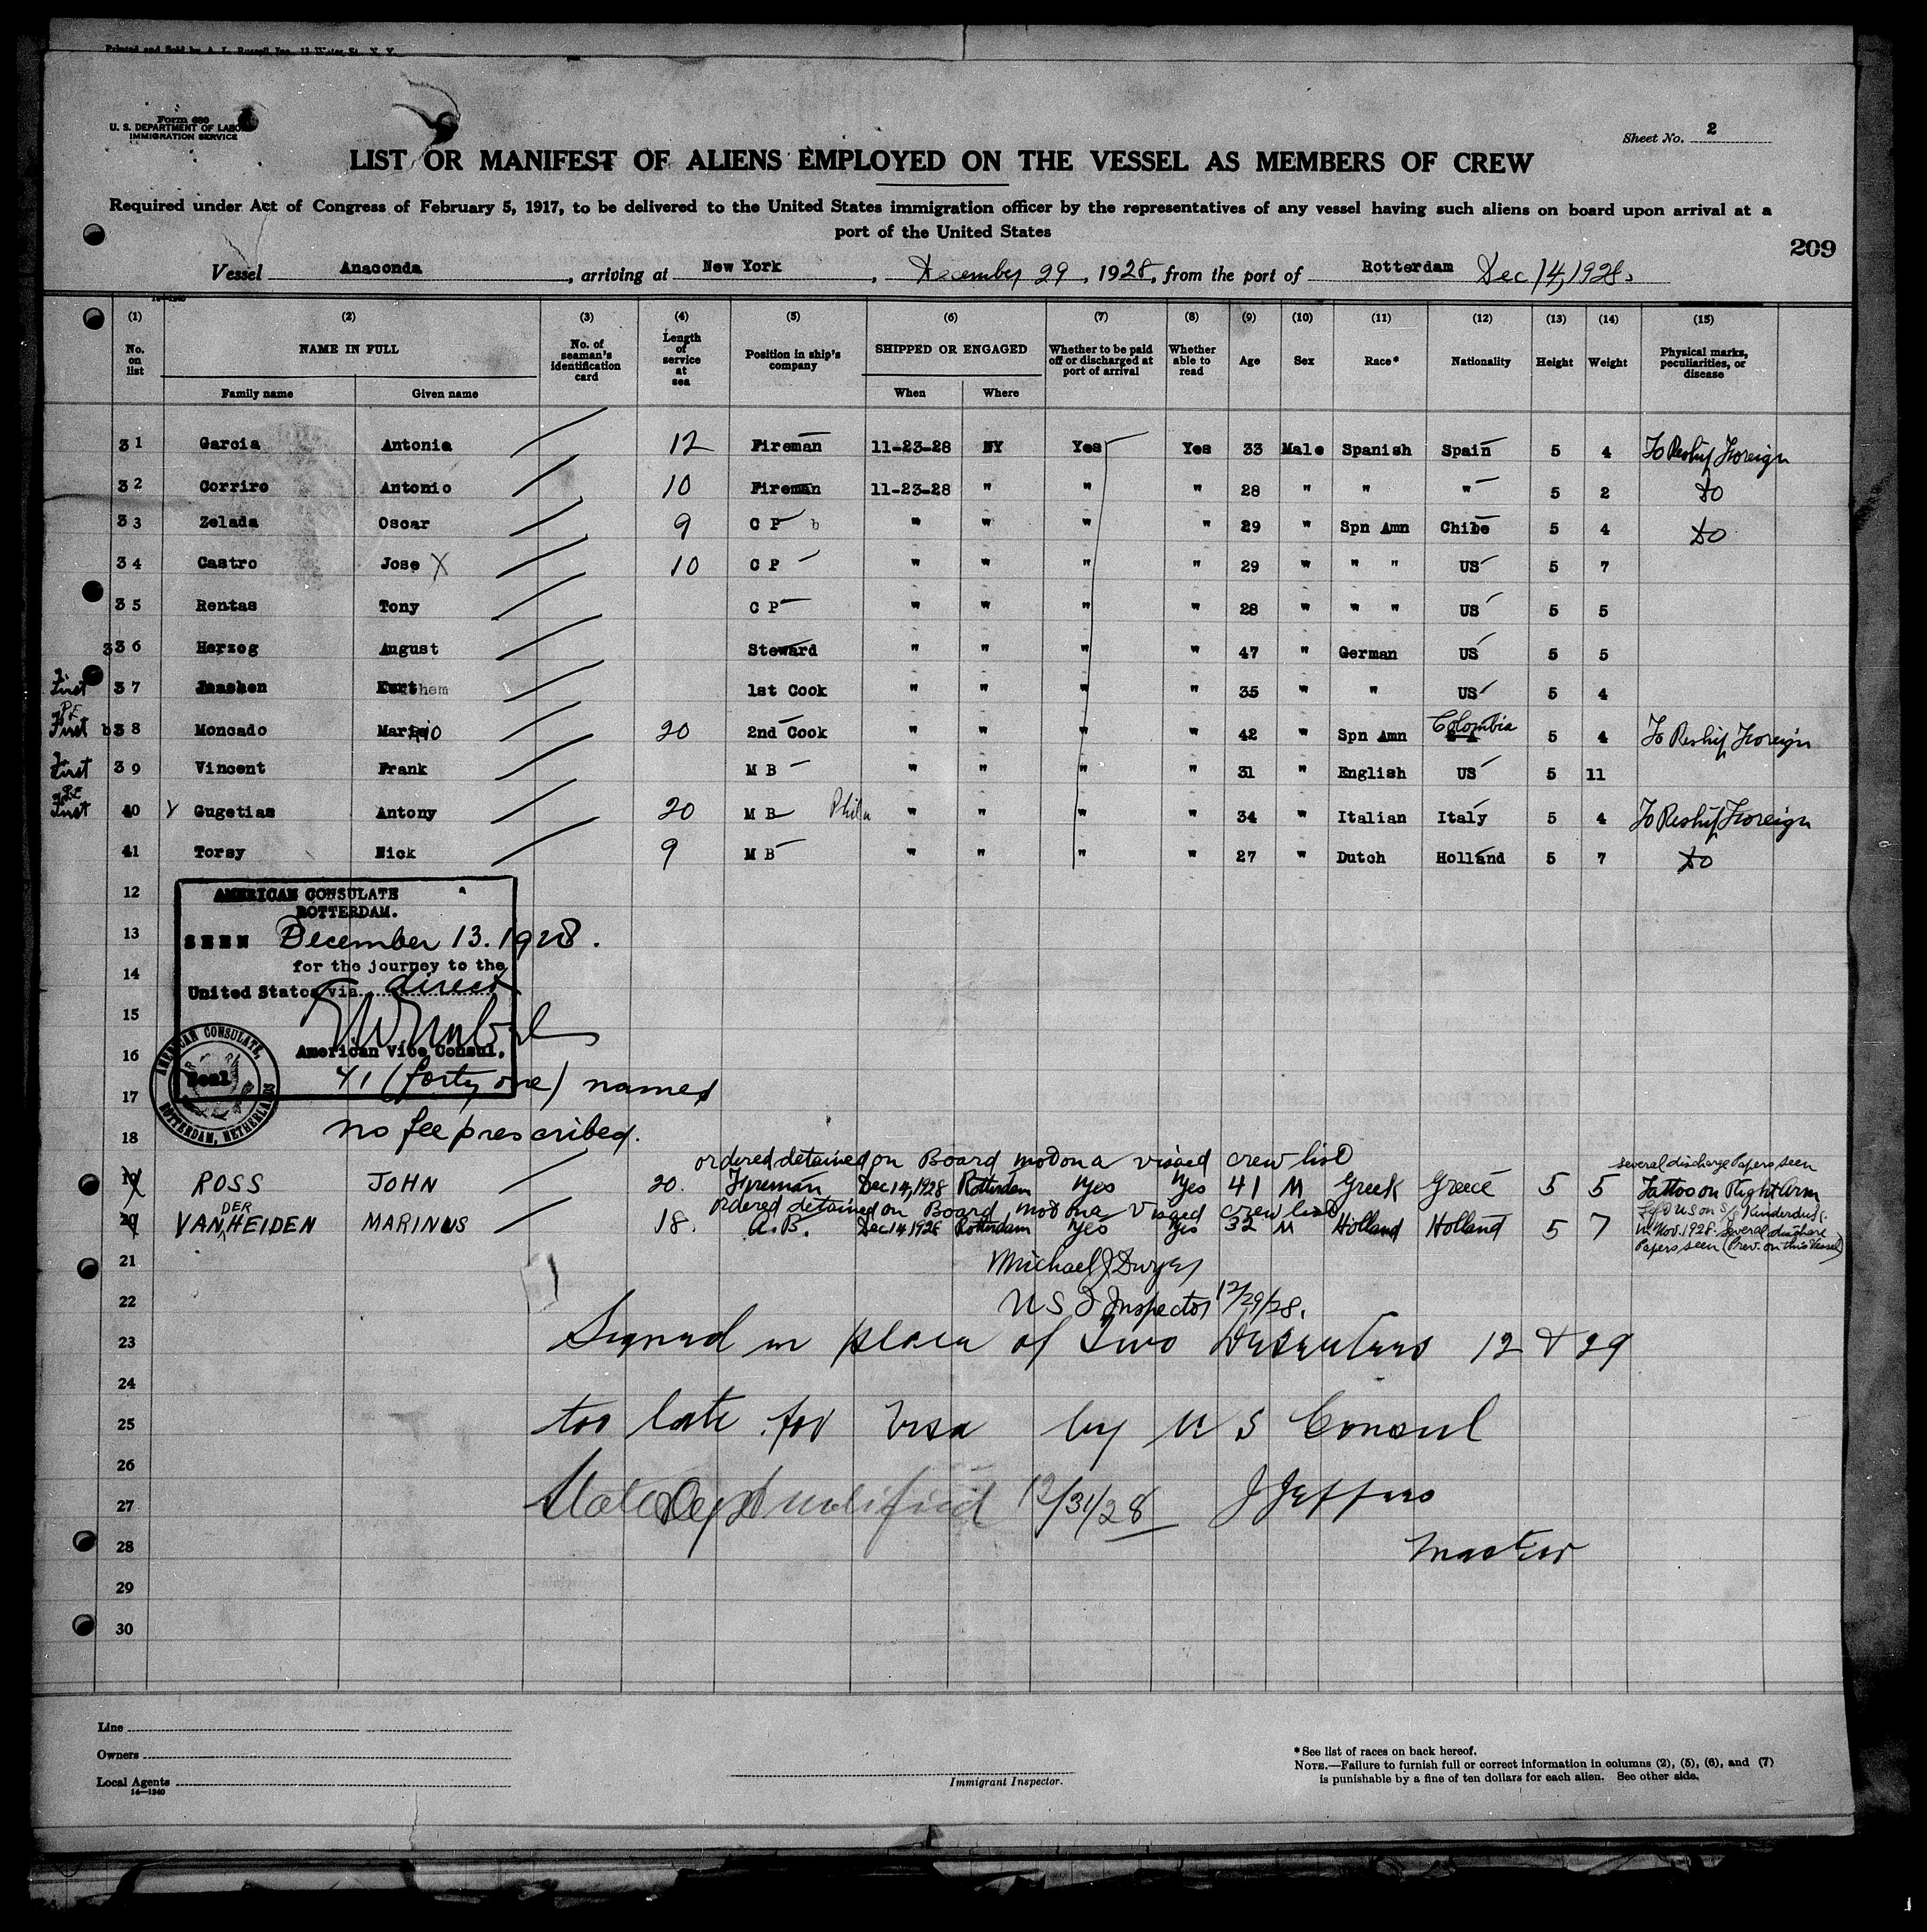 Printed and Sold by A. L. Russell Inc. 11 Water St. N. Y.
Form 689
U. S. DEPARTMENT OF LABOR
IMMIGRATION SERVICE
Sheet No. 2
LIST OR MANIFEST OF ALIENS EMPLOYED ON THE VESSEL AS MEMBERS OF CREW
Required under Act of Congress of February 5, 1917, to be delivered to the United States immigration officer by the representatives of any vessel having such aliens on board upon arrival at a
port of the United States
209
Vessel Anaconda, arriving at New York, December 29, 1928, from the port of Rotterdam Dec 14, 1928.
(1) (2) (3) (4) (5) (6) (7) (8) (9) (10) (11) (12) (13) (14) (15)
No. on list NAME IN FULL No. of seaman's identification card Length of service at sea Position in ship's company SHIPPED OR ENGAGED Whether to be paid off or discharged at port of arrival Whether able to read Age Sex Race* Nationality Height Weight Physical marks, peculiarities, or disease
Family name Given name When Where
31 Garcia Antonio 12 Fireman 11-23-28 NY Yes Yes 33 Male Spanish Spain 5 4 To Reship Foreign
32 Corriro Antonio 10 Fireman 11-23-28 " " " 28 " " " 5 2 DO
33 Zelada Oscar 9 C P b " " " " 29 " Spn Amn Chile 5 4 DO
34 Castro Jose X 10 C P " " " " 29 " " " US 5 7
35 Rentas Tony C P " " " " 28 " " " US 5 5
336 Herzog August Steward " " " " 47 " German US 5 5
First 37 Kurt 1st Cook " " " " 35 " " US 5 4
First 38 Moncado Mario 20 2nd Cook " " " " 42 " Spn Amn Colombia 5 4 To Reship Foreign
First 39 Vincent Frank M B " " " " 31 " English US 5 11
First 40 Gugetias Antony 20 M B Phila " " " " 34 " Italian Italy 5 4 To Reship Foreign
41 Torsy Nick 9 M B " " " " 27 " Dutch Holland 5 7 DO
12
AMERICAN CONSULATE
ROTTERDAM.
13
SEEN December 13. 1928.
14
for the journey to the
United States via direct
15
16
American Vice Consul.
AMERICAN CONSULATE, ROTTERDAM, NETHERLANDS
Seal
41 (forty one) names
17
no fee prescribed.
18
ordered detained on Board not on a visaed crew list several discharge Papers seen
19 ROSS JOHN 20. Fireman Dec 14, 1928 Rotterdam Yes Yes 41 M Greek Greece 5 5 Tattoo on Right Arm
Ordered detained on Board not on a Visaed crew list
20 VAN DER HEIDEN MARINUS 18. A.B. Dec 14 1928 Rotterdam Yes Yes 32 M Holland Holland 5 7 in Nov. 1928. several discharge
Papers seen (Prev. on this Vessel)
21
Michael J Dwyer
22
U S I Inspector 12/29/28.
23 Signed in place of Two Deserters 12 & 29
24
25 too late for Visa by U S Consul
26
27 State Dept notified 12/31/28 J Jeffers
28 Master
29
30
Line
Owners
Local Agents
14—1240
Immigrant Inspector.
*See list of races on back hereof.
NOTE.—Failure to furnish full or correct information in columns (2), (5), (6), and (7)
is punishable by a fine of ten dollars for each alien. See other side.